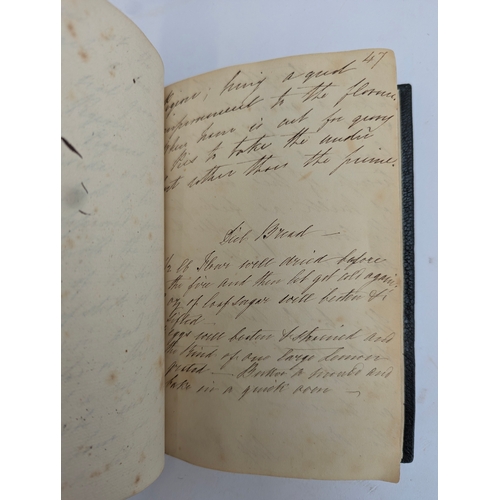 47
being a great
improvement to the flavour
when ham is cut for gravy
is to take the under
rather than the prime.
Bread —
lb Flour well dried before
the fire and then let get cold again
oz of loaf sugar well beaten &
sifted
eggs well beaten & strained and
the rind of one large lemon
grated — Butter a and
bake in a quick oven —